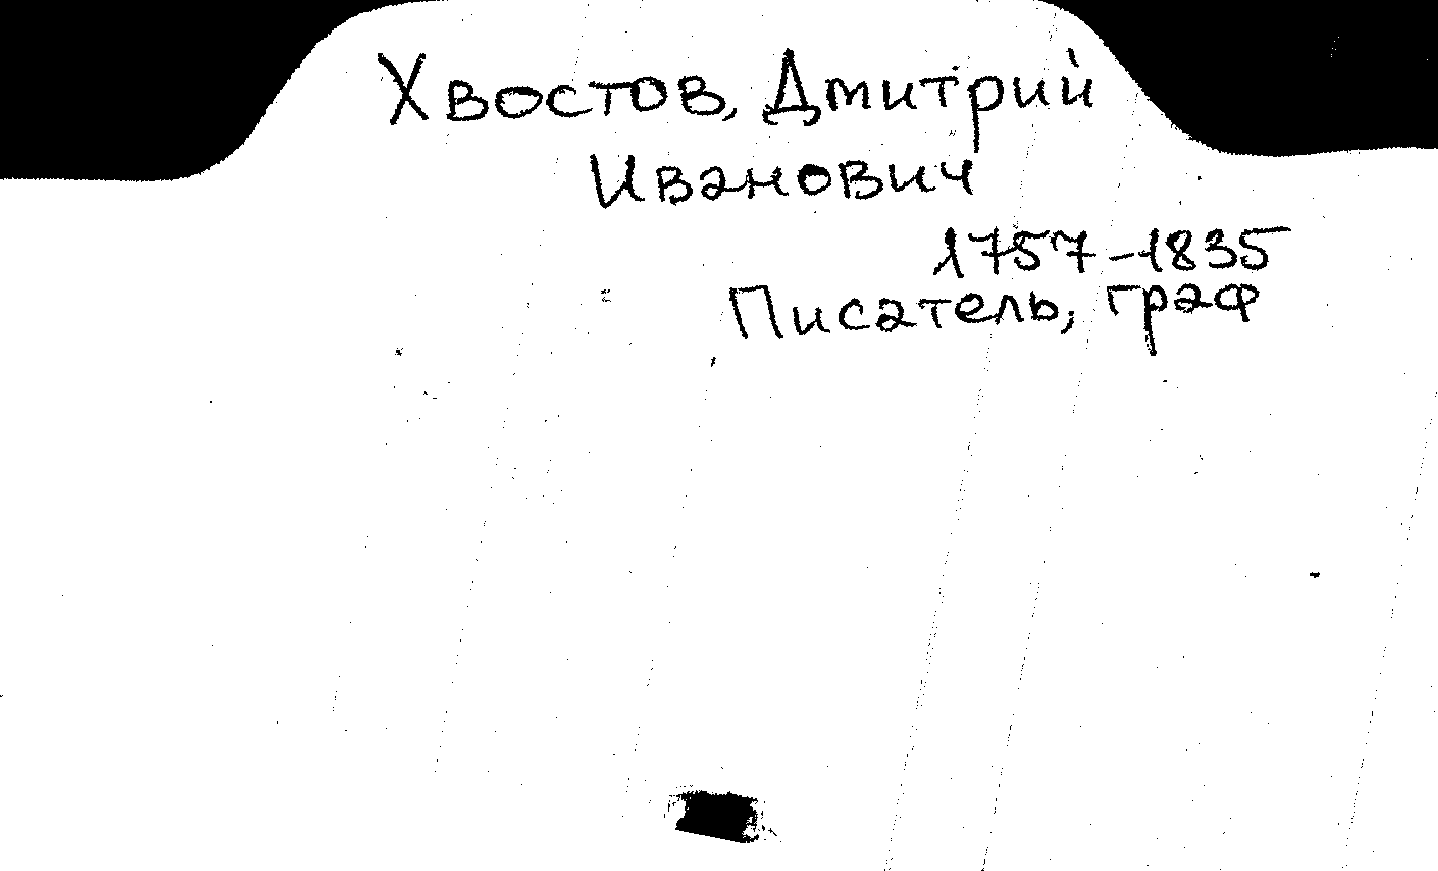 Хвостов, Дмитрий
Иванович
1757-1835
Писатель, граф